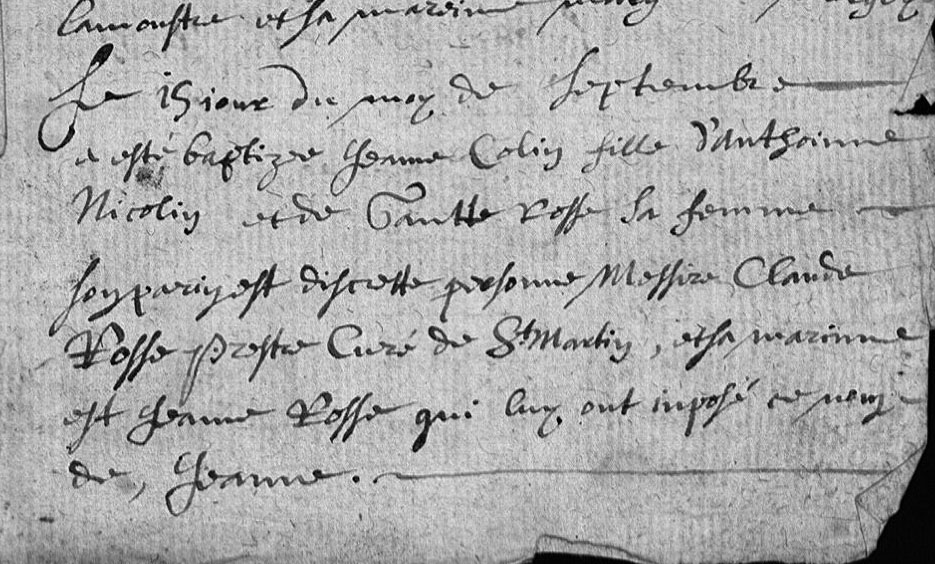 lamoustre et sa mareine
Le 15 jour du moy de septembre
a esté baptizee Jeanne Colin fille d'Anthoinne
Nicolin et de Rosse sa femme
son parin est discrette personne Messire Claude
Rosse prestre Curé de St Martin, et sa marinne
est Jeanne Rosse qui luy ont inposé ce nom
de, Jeanne.